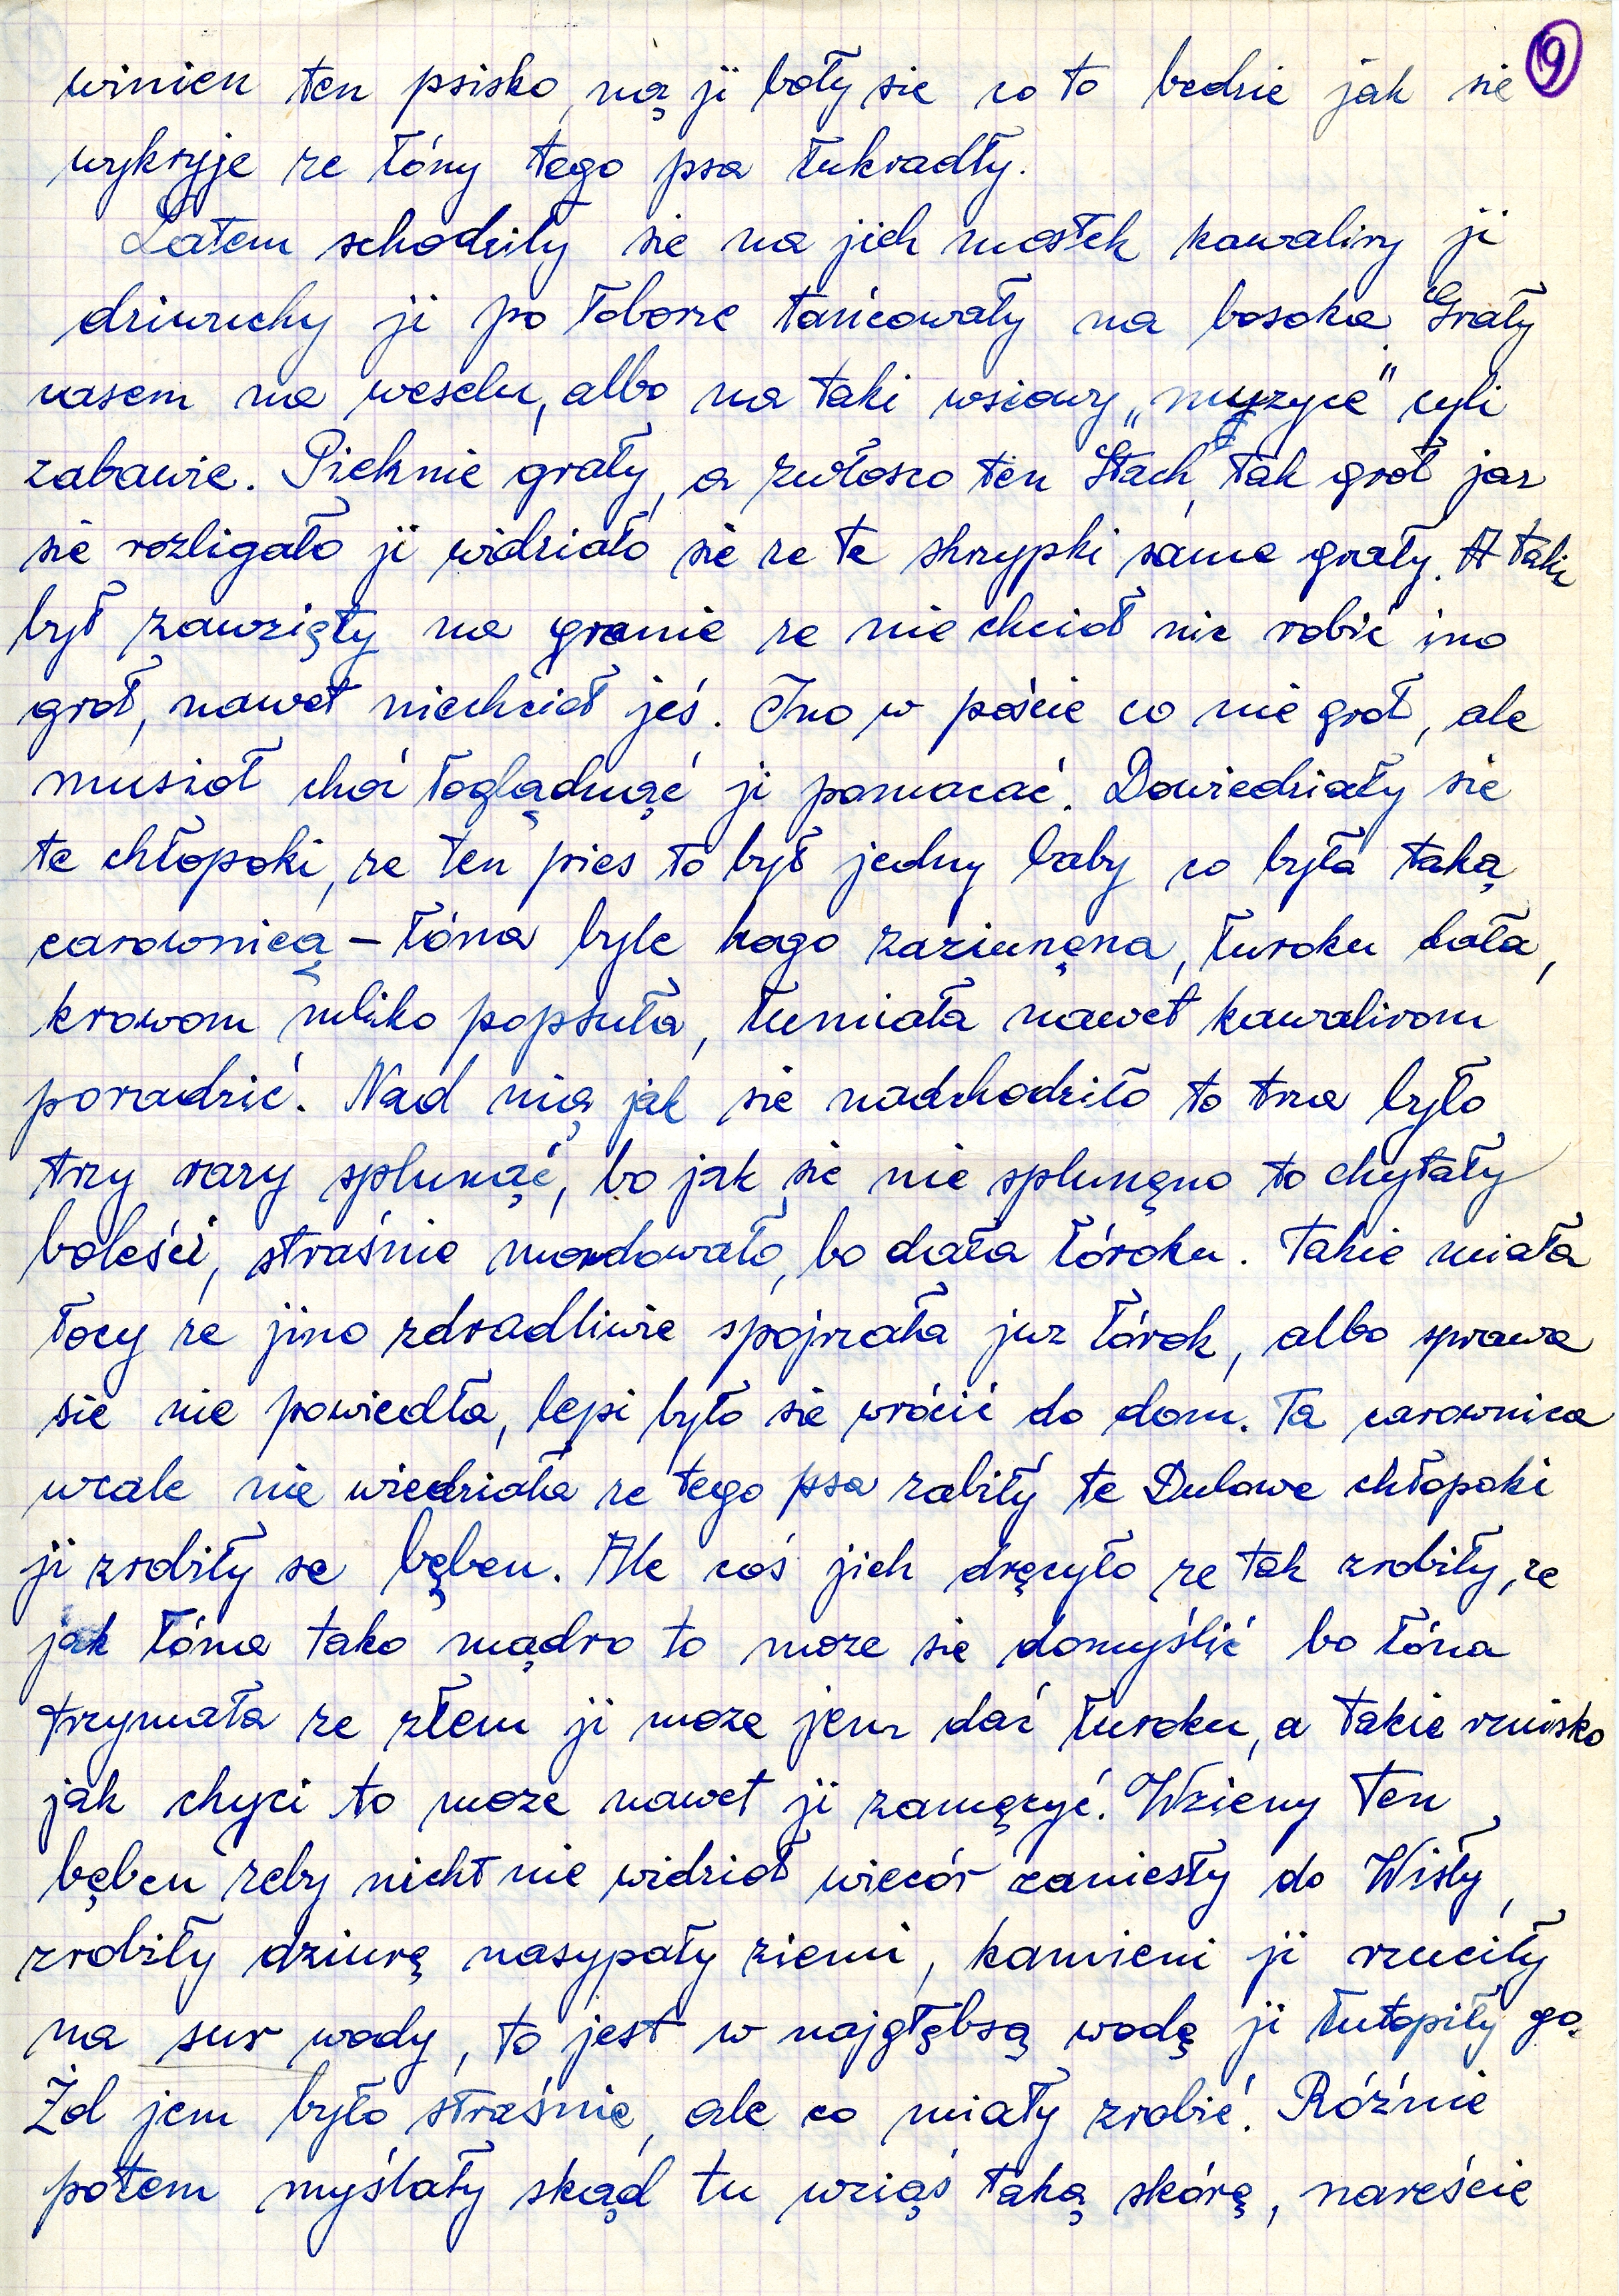 9
winien ten psisko, ną ji boły sie co to bedzie jak sie
wykryje ze łóny tego psa łukradły.
Latem schodziły sie na jich mostek kawaliry ji
dziwuchy ji po łoborze tańcowały na bosoka. Grały
casem na weselu, albo na taki wsiowy „muzyce” cyli
zabawie. Pieknie grały, a zwłosco ten Stach, tak groł jaz
sie rozligało ji widziało sie ze te skrzypki same grały. A taki
był zawzięty na granie ze nie chcioł nic robić ino
groł, nawet niechcioł jeś. Ino w poście co nie groł, ale
musioł choć łoglądnąć ji pomacać. Dowiedziały sie
te chłopoki, ze ten pies to był jedny baby co była taką
carownicą – łóna byle kogo zaziunęna, łuroku dała,
krowom mliko popsuła, łumiała nawet kawalirom
poradzić. Nad nią jak sie nadchodziło to trza było
trzy razy splunąć, bo jak sie nie splunęno to chytały
boleści, straśnie mordowało, bo dała łóroku. Takie miała
łocy ze jino zdradliwie spojrzała juz łórok, albo sprawa
sie nie powiedła, lepi było sie wrócić do dom. Ta carownica
wcale nie wiedziała ze tego psa zabiły te Dulowe chłopoki
ji zrobiły se bęben. Ale coś jich dręcyło ze tak zrobiły, ze
jak łóna tako mądro to moze sie domyślić bo łóna
trzymała ze złem ji moze jem dać łuroku, a takie rznisko
jak chyci to moze nawet ji zamęcyć. Wzieny ten
bęben zeby nicht nie widzioł wiecór zaniesły do Wisły,
zrobiły dziurę nasypały ziemi, kamieni ji rzuciły
na sur wody, to jest w najgłębsą wodę ji łutopiły go.
Żol jem było straśnie, ale co miały zrobić. Różnie
potem myślały skąd tu wziąś taką skórę, nareście